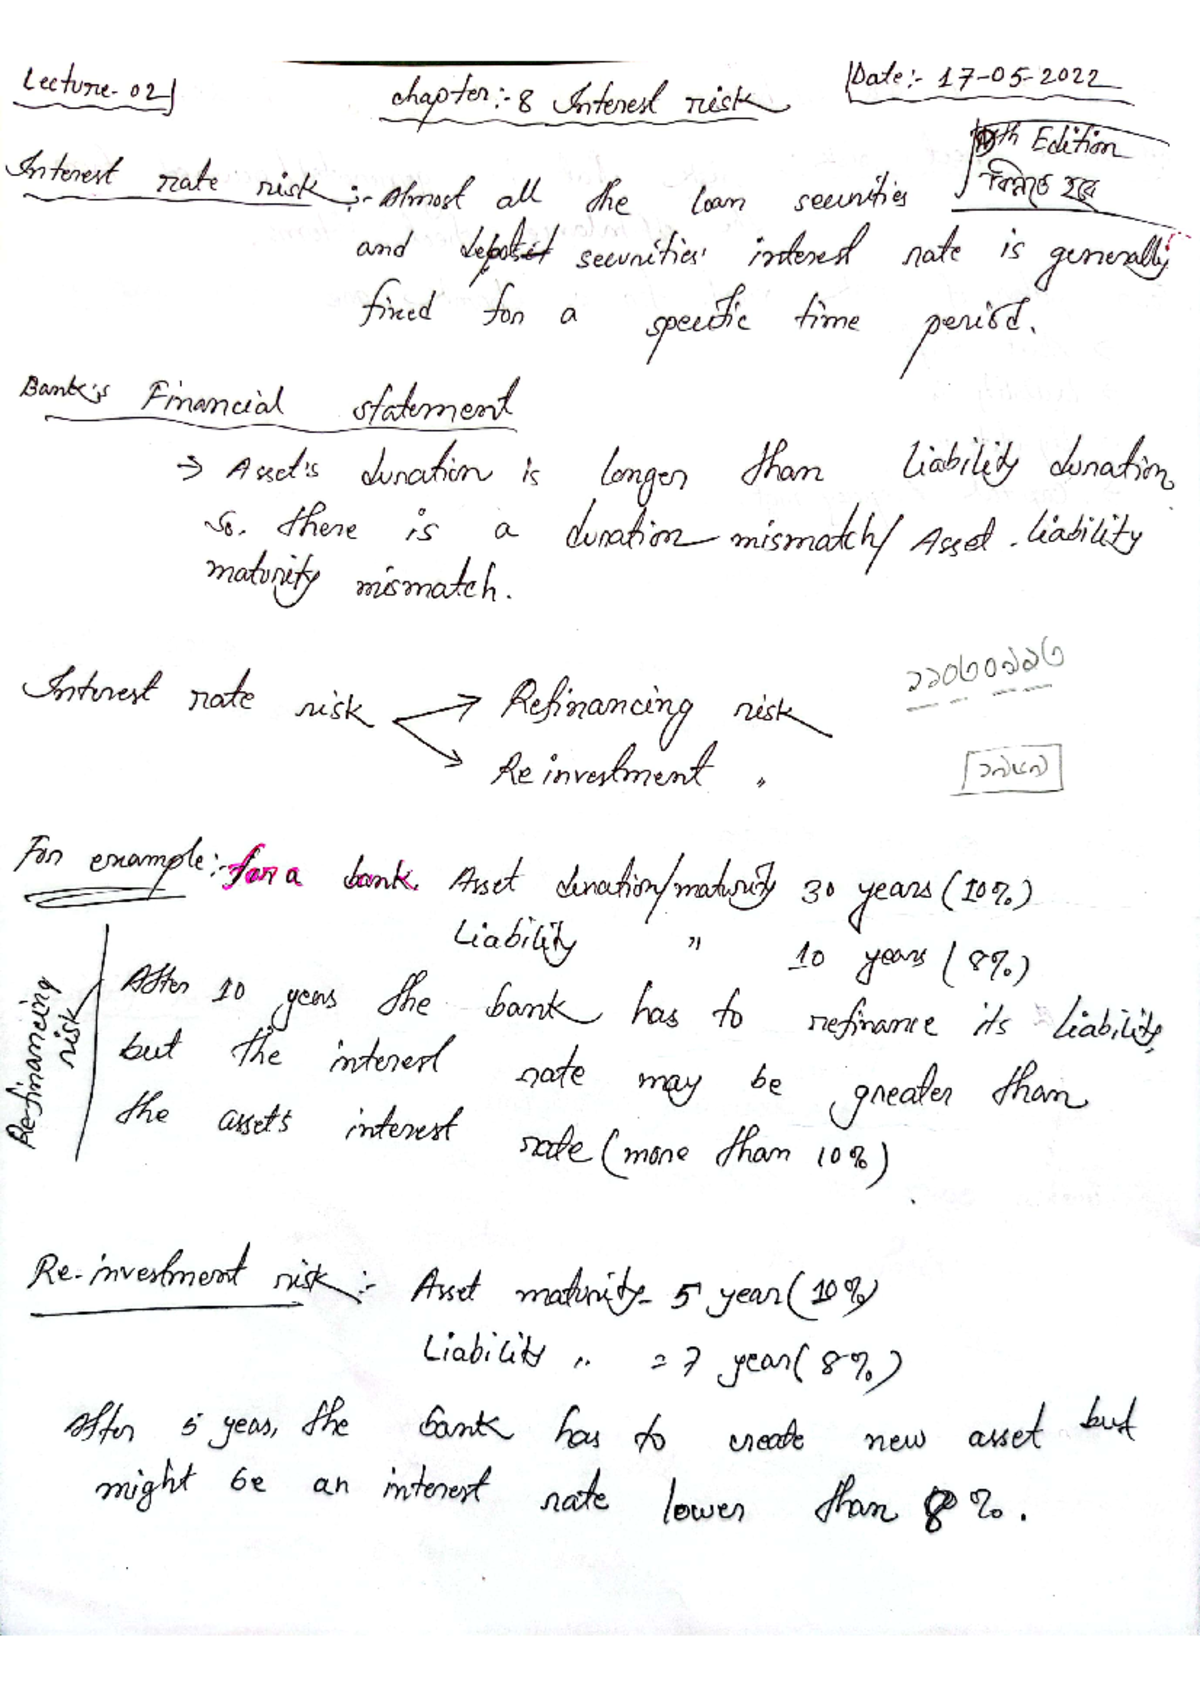 Lecture-02
chapter:-8 Interest risk
Date:- 17-05-2022
th Edition
কিনতে হবে
Interest rate risk :- Almost all the loan securities
and deposit securities' interest rate is generally
fixed for a specific time period.
Bank's Financial statement
→ Asset's duration is longer than liability duration
So. there is a duration mismatch/ Asset. liability
maturity mismatch.
Interest rate risk → Refinancing risk
→ Re investment "
For example:- for a bank. Asset duration/maturity 30 years (10%)
Liability " 10 years (8%)
Refinancing risk
After 10 years the bank has to refinance its liability,
but the interest rate may be greater than
the assets interest rate (more than 10%)
Re-investment risk :- Asset maturity- 5 year (10%)
Liability " = 7 year (8%)
After 5 yeas, the bank has to create new asset but
might be an interest rate lower than 8%.